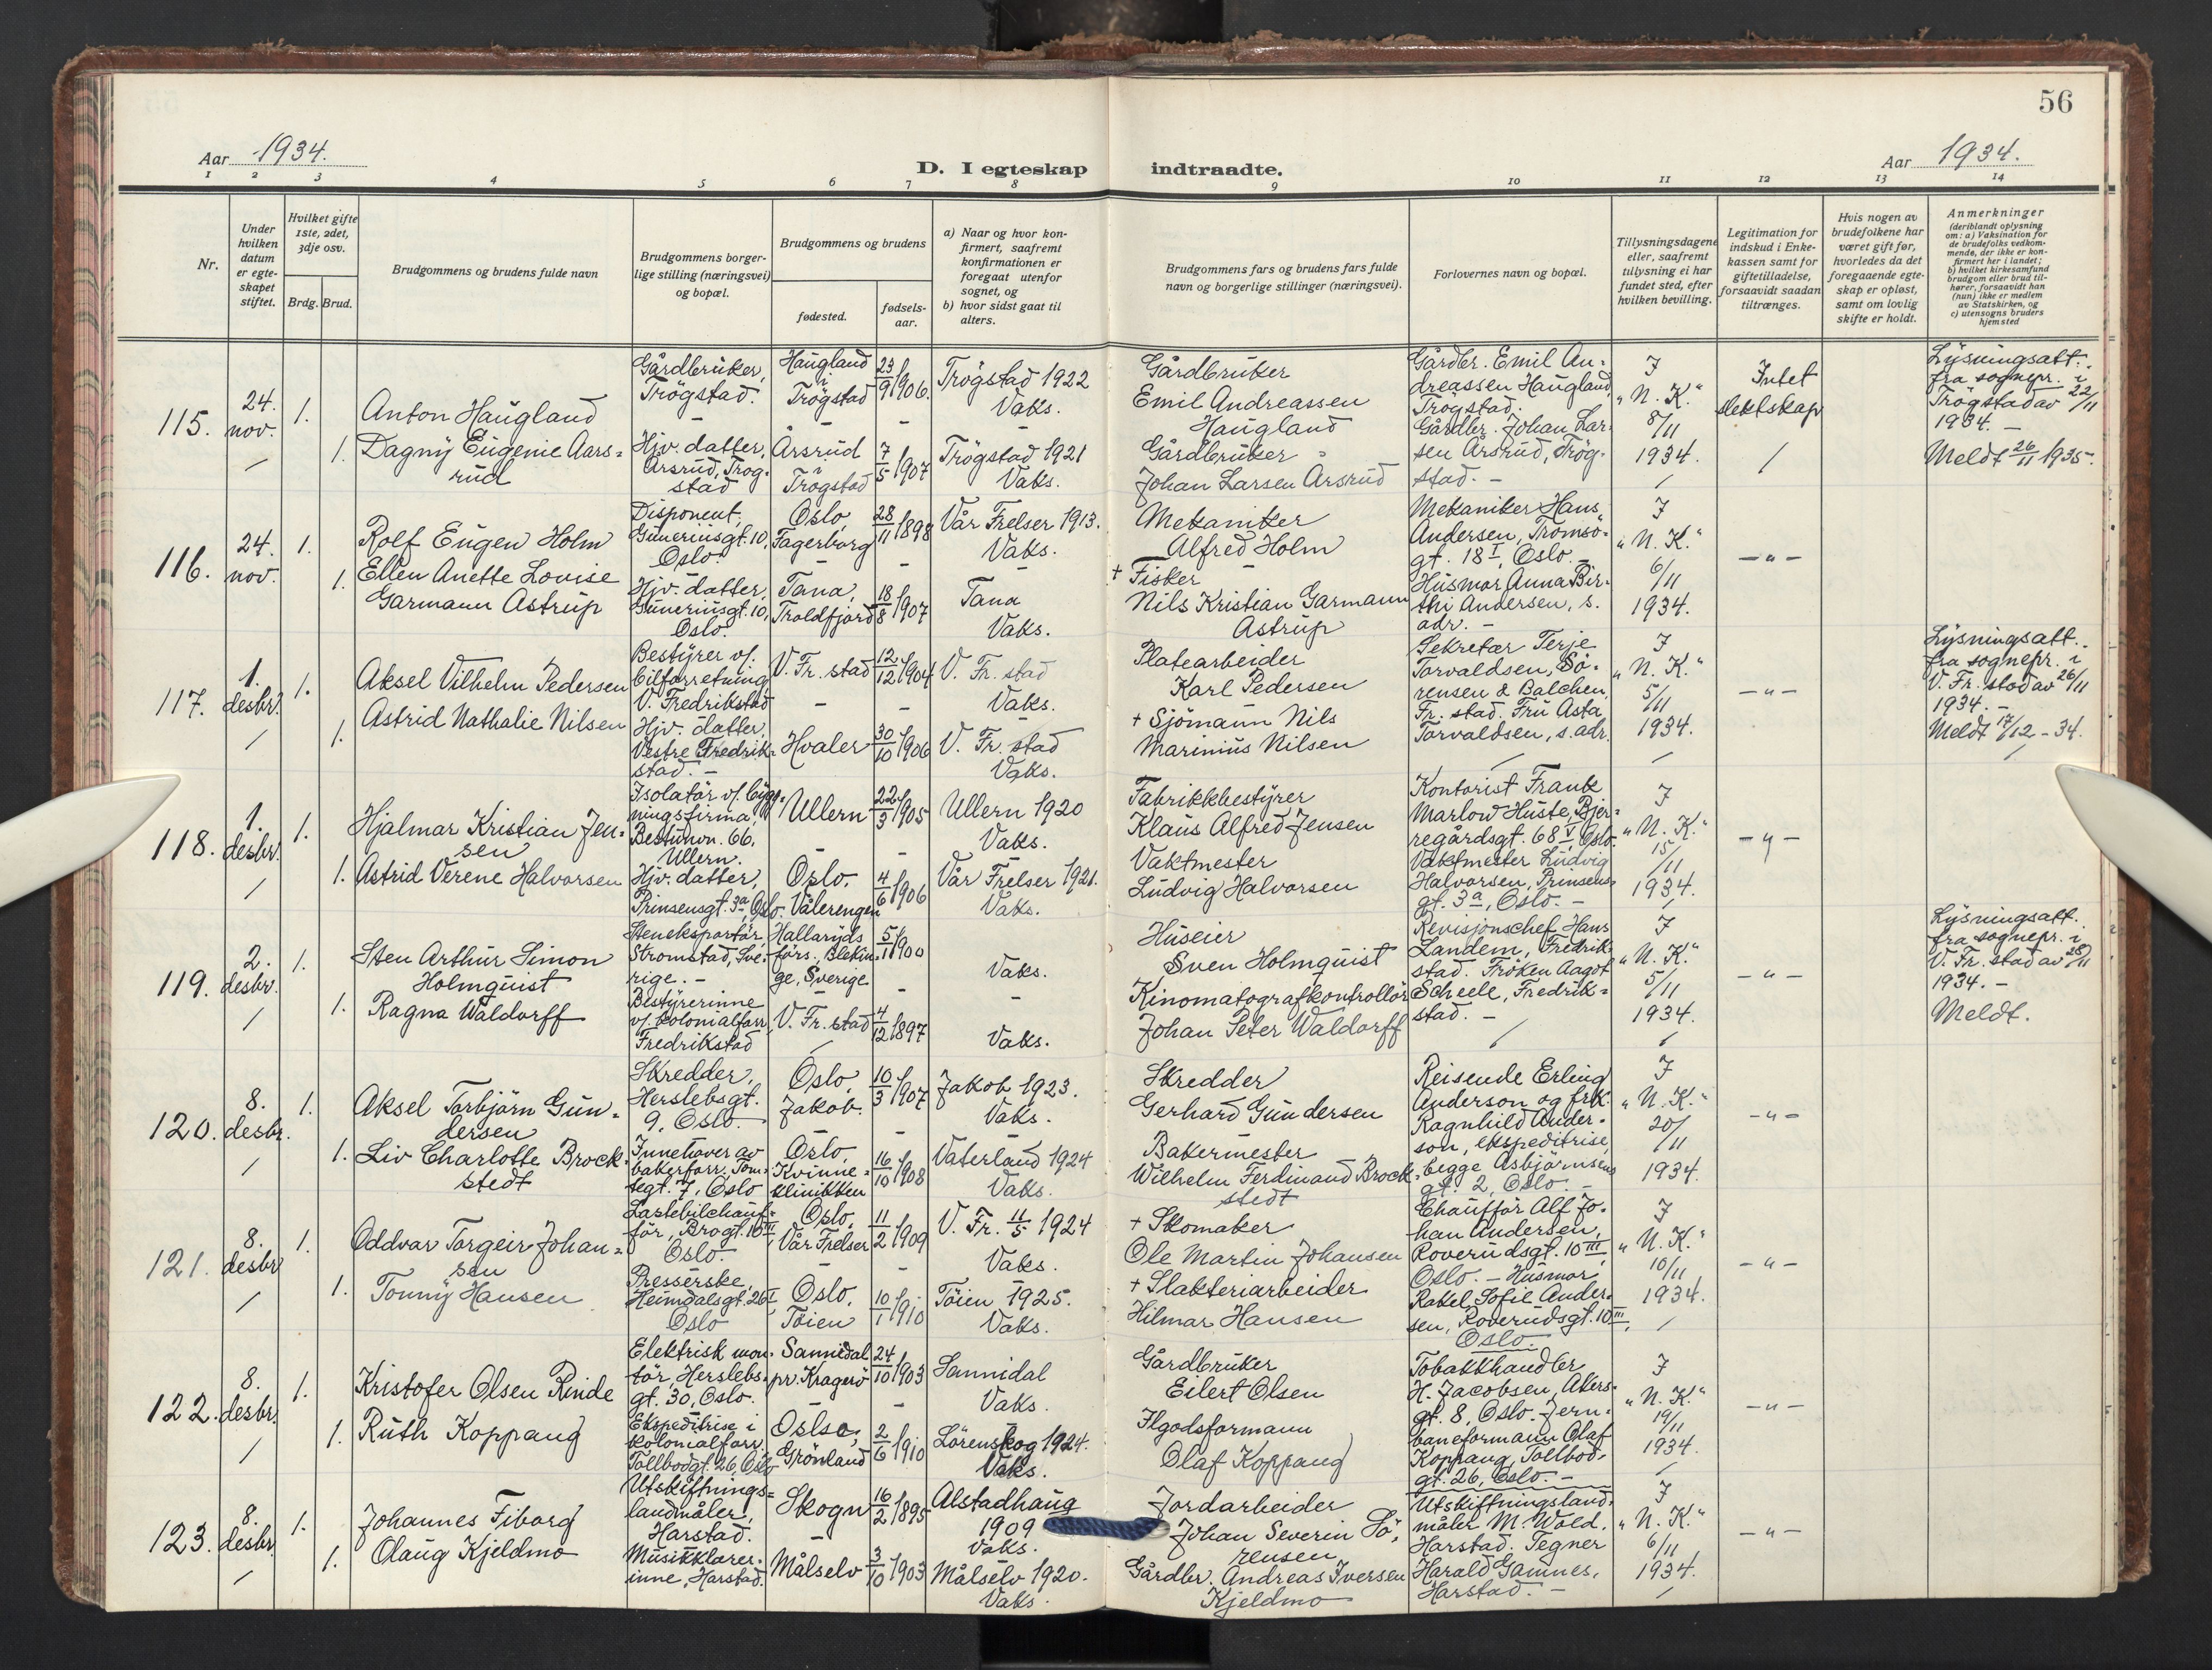 56
Aar 1934.
D. I egteskap indtraadte.
Aar 1934.
1 2 3 4 5 6 7 8 9 10 11 12 13 14
Nr.
Under hvilken datum er egteskapet stiftet.
Hvilket gifte 1ste, 2det, 3dje osv.
Brdg. Brud.
Brudgommens og brudens fulde navn
Brudgommens borgerlige stilling (næringsvei) og bopæl.
Brudgommens og brudens
fødested.
fødselsaar.
a) Naar og hvor konfirmert, saafremt konfirmationen er foregaat utenfor sognet, og
b) hvor sidst gaat til alters.
Brudgommens fars og brudens fars fulde navn og borgerlige stillinger (næringsvei).
Forlovernes navn og bopæl.
Tillysningsdagene eller, saafremt tillysning ei har fundet sted, efter hvilken bevilling.
Legitimation for indskud i Enkekassen samt for giftetilladelse, forsaavidt saadan tiltrænges.
Hvis nogen av brudefolkene har været gift før, hvorledes da det foregaaende egteskap er opløst, samt om lovlig skifte er holdt.
Anmerkninger
(deriblandt oplysning om: a) Vaksination for de brudefolks vedkommende, der ikke er konfirmert her i landet;
b) hvilket kirkesamfund brudgom eller brud tilhører, forsaavidt han (hun) ikke er medlem av Statskirken, og
c) utensogns bruders hjemsted
115. 24. nov. 1. Anton Haugland
Gårdbruker, Trögstad. -
Haugland i Trögstad 23/9 1906.
Trögstad 1922 Vaks.
Gårdbruker Emil Andreassen Haugland
Gårdbr. Emil Andreassen Haugland, Trögstad. Gårdbr. Johan Larsen Årsrud, Trögstad. -
I "N. K." 8/11 1934.
Intet slektskap
Lysningsatt. fra sognepr. i Trögstad av 22/11 1934. -
Meldt 26/11 1935.
1. Dagny Eugenie Aarsrud
Hjv. datter, Årsrud, Trögstad
Årsrud i Trögstad 7/5 1907
Trögstad 1921 Vaks.
Gårdbruker Johan Larsen Årsrud
116. 24. nov. 1. Rolf Eugen Holm
Disponent, Guneriusgt. 10, Oslo. -
Oslo, Fagerborg 28/11 1898
Vår Frelser 1913. Vaks.
Mekaniker Alfred Holm
Mekaniker Hans Andersen, Tromsögt. 18 I, Oslo. - Husmor Anna Birthi Andersen, s. adr. -
I "N. K." 6/11 1934.
- " -
1. Ellen Anette Lovise Garmann Astrup
Hjv. datter, Guneriusgt. 10, Oslo.
Tana, Troldfjord 18/8 1907
Tana Vaks.
+ Fisker Nils Kristian Garmann Astrup
117. 1. desbr. 1. Aksel Vilhelm Pedersen
Bestyrer v/. bilforretning V. Fredrikstad
V. Fr. stad 12/12 1904
V. Fr. stad Vaks.
Platearbeider Karl Pedersen
Sekretær Terje Torvaldsen, Sörensen & Balchen, Fr. stad. Fru Asta Torvaldsen, s. adr.
I "N. K." 5/11 1934.
- " -
Lysningsatt. fra sognepr. i V. Fr. stad av 26/11 1934. -
Meldt 17/12 - 34.
1. Astrid Nathalie Nilsen
Hjv. datter, Vestre Fredrikstad. -
Hvaler 30/10 1906
V. Fr. stad Vaks.
+ Sjömann Nils Marinius Nilsen
118. 1. desbr. 1. Hjalmar Kristian Jensen
Isolatör v/. bygningsfirma, Bestumvn. 66, Ullern.
Ullern 22/3 1905
Ullern 1920 Vaks.
Fabrikkbestyrer Klaus Alfred Jensen
Kontorist Frank Marlow Huste, Bjerregårdsgt. 68 V, Oslo. Vaktmester Ludvig Halvorsen, Prinsensgt. 3a, Oslo. -
I "N. K." 15/11 1934.
- " -
1. Astrid Verene Halvorsen
Hjv. datter, Prinsensgt. 3a, Oslo.
Oslo. Vålerengen 4/6 1906
Vår Frelser 1921. Vaks.
Vaktmester Ludvig Halvorsen
119. 2. desbr. 1. Sten Arthur Simon Holmquist
Steneksportör, Strömstad, Sverige. -
Hallaryds förs., Blekinge, Sverige 5/11 1900
Vaks.
Huseier Sven Holmquist
Revisjonschef Hans Landem, Fredrikstad. Fröken Aagot Scheele, Fredrikstad. -
I "N. K." 5/11 1934.
- " -
Lysningsatt. fra sognepr. i V. Fr. stad av 28/11 1934. -
Meldt.
1. Ragna Waldorff
Bestyrerinne v/. kolonialforr., Fredrikstad
V. Fr. stad 4/12 1897
Vaks.
Kinomatografkontrollör Johan Peter Waldorff
120. 8. desbr. 1. Aksel Torbjörn Gundersen
Skredder, Herslebsgt. 9, Oslo. -
Oslo, Jakob. 10/3 1907
Jakob 1923. Vaks.
Skredder Gerhard Gundersen
Reisende Erling Anderson og frk. Ragnhild Anderson, ekspeditrise, begge Asbjörnsens gt. 2, Oslo. -
I "N. K." 20/11 1934.
- " -
1. Liv Charlotte Brockstedt
Innehaver av bakerforr. Tomtegt. 7, Oslo
Oslo, Kvinneklinikken 16/10 1908
Vaterland 1924 Vaks.
Bakermester Wilhelm Ferdinand Brockstedt
121. 8. desbr. 1. Oddvar Torgeir Johansen
Lastebilchaufför, Brogt. 10 III, Oslo.
Oslo, Vår Frelser 11/2 1909
V. Fr. 11/5 1924 Vaks.
+ Skomaker Ole Martin Johansen
Chaufför Alf Johan Andersen, Roverudsgt. 10 III, Oslo. - Husmor Rakel Sofie Andersen, Roverudsgt. 10 III, Oslo.
I "N. K." 10/11 1934.
- " -
1. Tonny Hansen
Presserske, Heimdalsgt. 26 I, Oslo
Oslo, Töien 10/1 1910
Töien 1925. Vaks.
+ Slakteriarbeider Hilmar Hansen
122. 8. desbr. 1. Kristofer Olsen Rinde
Elektrisk montör, Herslebsgt. 30, Oslo.
Sannidal pr. Kragerö 24/10 1903
Sannidal Vaks.
Gårdbruker Eilert Olsen
Tobakkhandler H. Jacobsen, Akersgt. 8, Oslo. Jernbaneformann Olaf Koppang, Tollbodgt. 26, Oslo. -
I "N. K." 19/11 1934.
- " -
1. Ruth Koppang
Ekspeditrise i kolonialforr., Tollbodgt. 26, Oslo
Oslo, Grönland 2/6 1910
Lörenskog 1924. Vaks.
Ilgodsformann Olaf Koppang
123. 8. desbr. 1. Johannes Fiborg
Utskiftningslandmåler, Harstad.
Skogn 16/2 1895
Alstadhaug 1909 Vaks.
Jordarbeider Johan Severin Sörensen
Utskiftningslandmåler M. Wold, Harstad. Tegner Harald Gamnes, Harstad. -
I "N. K." 6/11 1934.
- " -
1. Olaug Kjeldmo
Musikklærerinne, Harstad.
Målselv 3/10 1903
Målselv 1920. Vaks.
Gårdbr. Andreas Iversen Kjeldmo